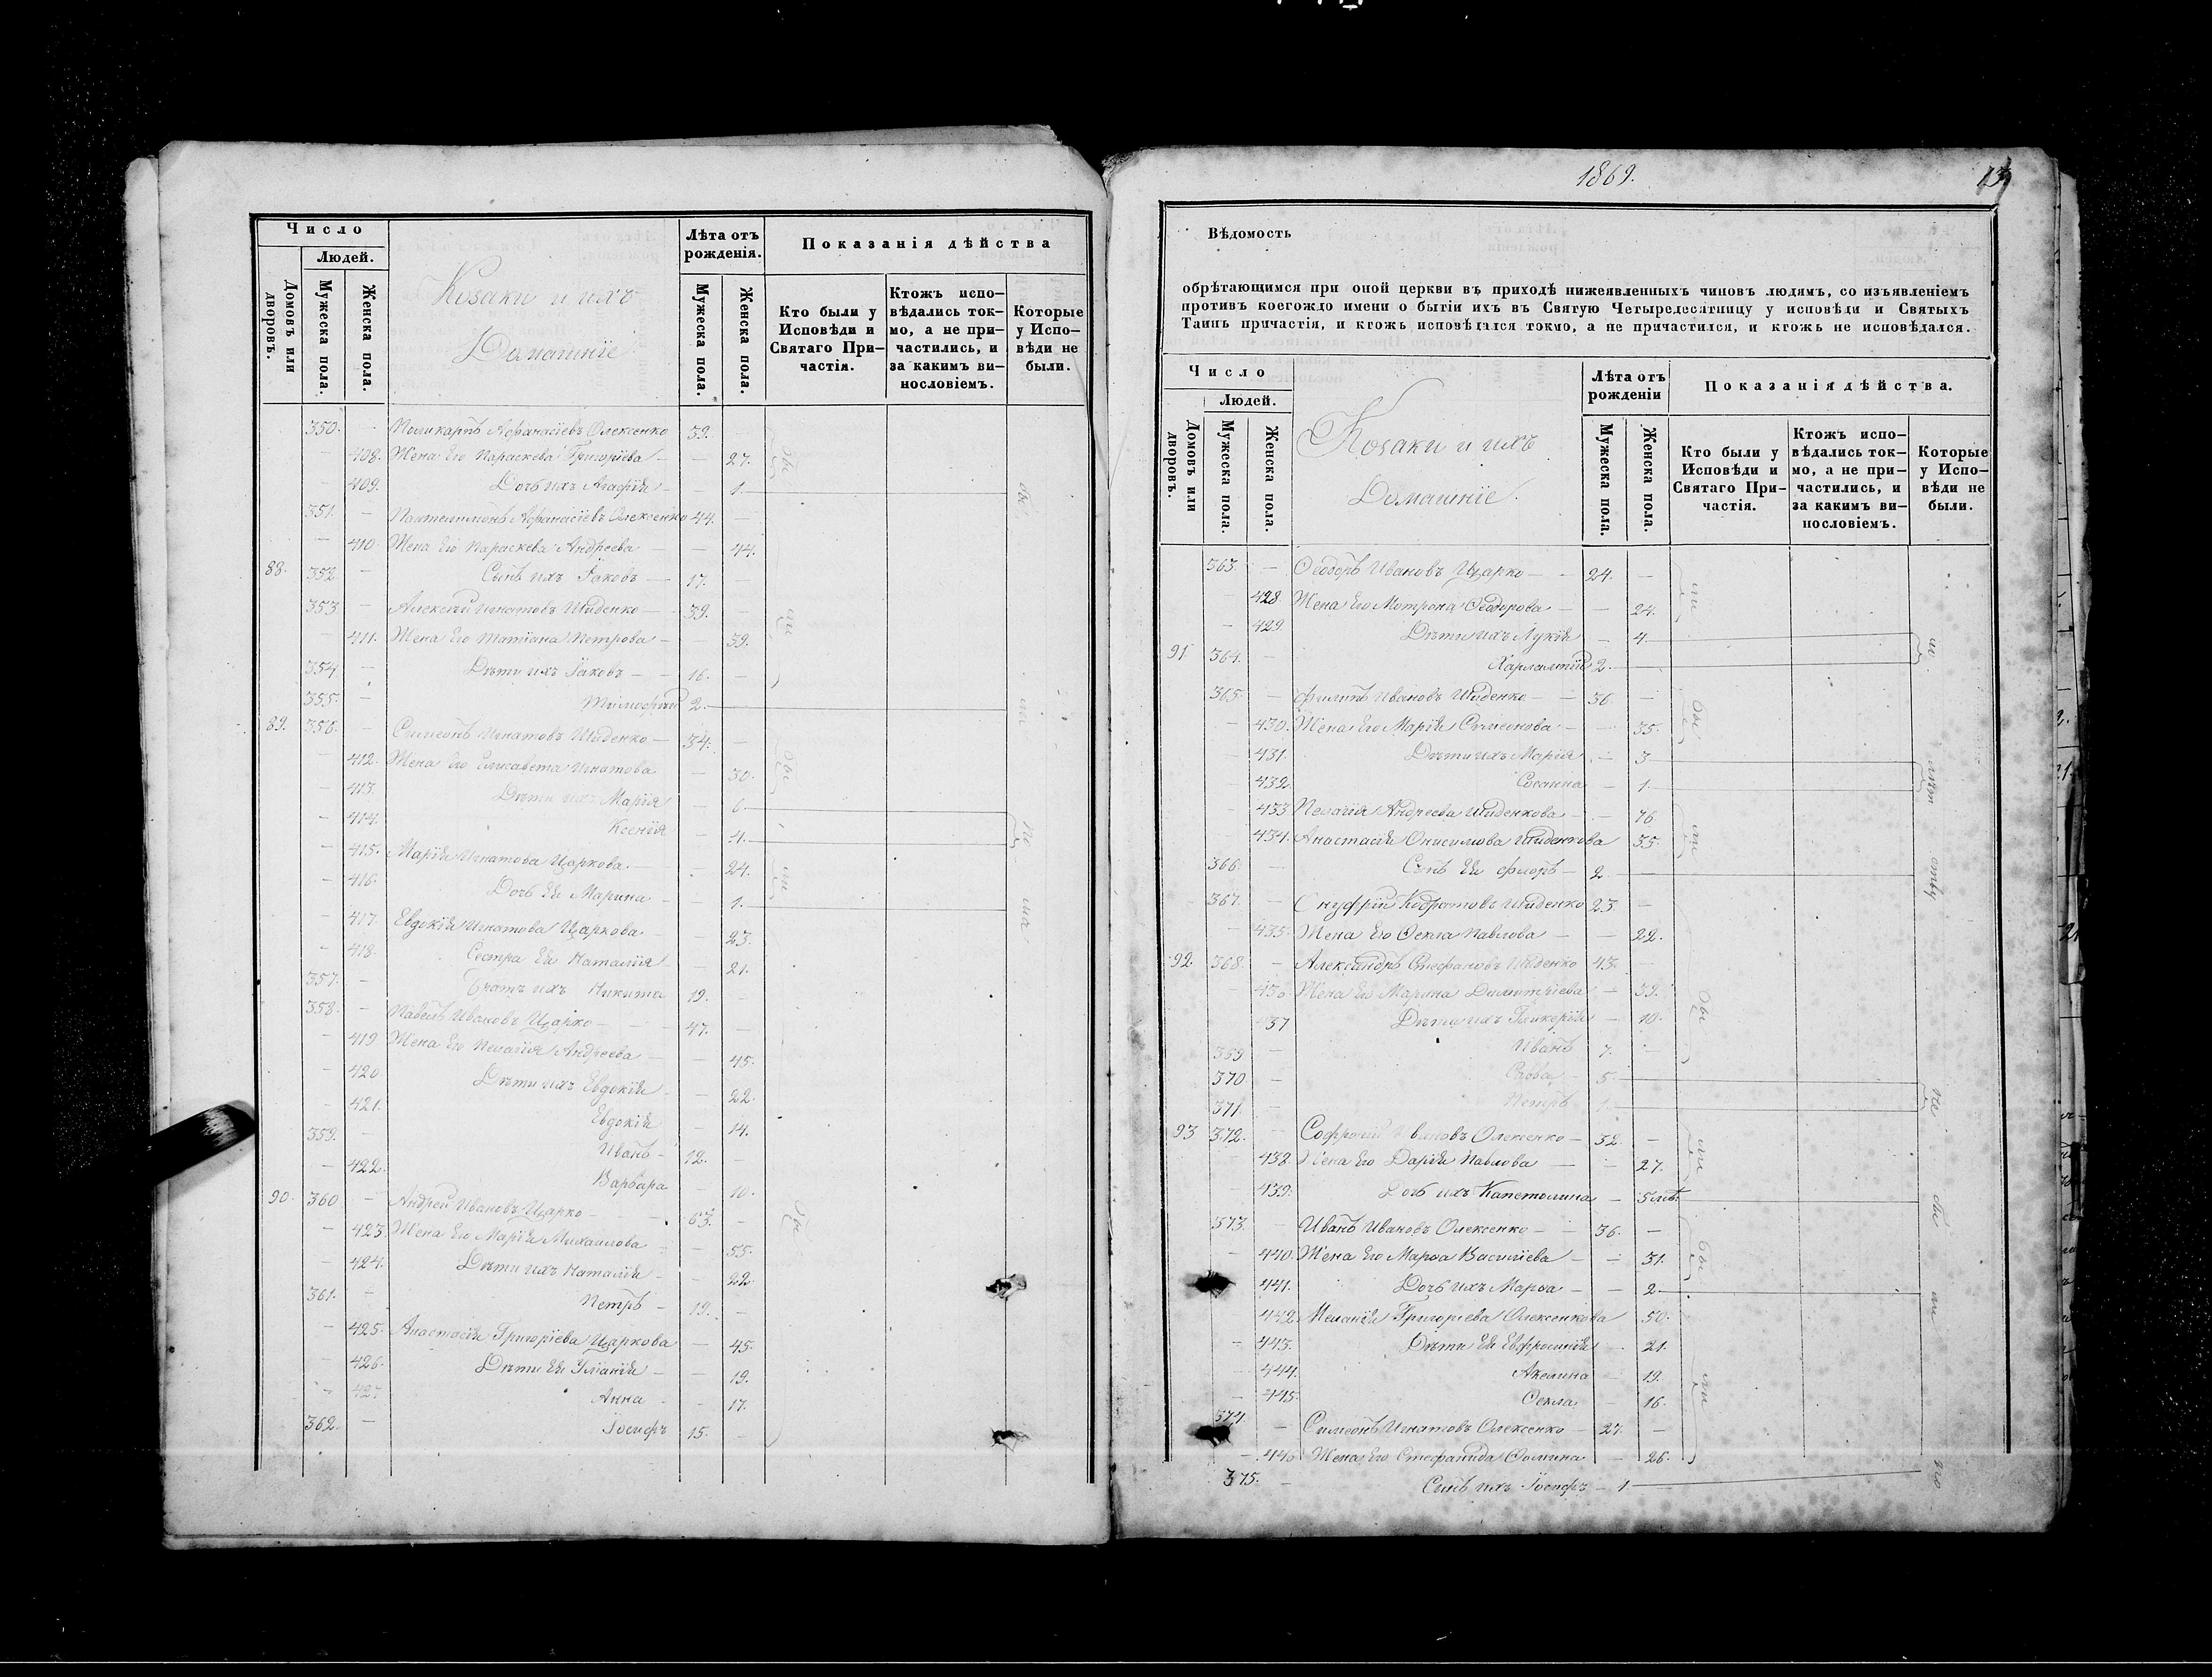 Число
Людей.
Домовъ или дворовъ.
Мужеска пола.
Женска пола.
Козаки и ихъ
Домашніе
Лѣта отъ рожденія.
Мужеска пола.
Женска пола.
Показанія дѣйства
Кто были у Исповѣди и Святаго При-частія.
Ктожъ испо-вѣдались ток-мо, а не при-частились, и за какимъ ви-нословіемъ.
Которые у Испо-вѣди не были.
350. - Поликарпъ Афанасіевъ Олексенко 39.
- 408. Жена Его Параскева Григоріева - - 27.
- 409. Дочь ихъ Агафія - - 1.
351. - Пантелимонъ Афанасіевъ Олексенко 44. -
- 410. Жена Его Параскева Андреева - - 44.
88. 352. - Сынъ ихъ Іаковъ - 17. -
353. - Алексѣй Игнатовъ Шиденко - 39. -
- 411. Жена Его Татіана Петрова - - 39.
354. - Дѣти ихъ Іаковъ - 16. -
355. - Тимофей 2.
89. 356. - Симеонъ Игнатовъ Шиденко - 34. -
- 412. Жена Его Елисавета Игнатова - 30.
- 413. Дѣти ихъ Марія - 6.
- 414. Ксенія - 4.
- 415. Марія Игнатова Царкова. - 24.
- 416. Дочь Ея Марина - - 1.
- 417. Евдокія Игнатова Царкова. - 23.
- 418. Сестра Ея Наталія - - 21.
357. - Братъ ихъ Никита 19. -
358. - Павелъ Ивановъ Царко - 47. -
- 419. Жена Его Пелагія Андреева - - 45.
- 420. Дѣти ихъ Евдокія - - 22.
- 421. Евдокія - 14.
359. - Иванъ - 12. -
- 422. Варвара - 10.
90. 360. - Андрей Ивановъ Царко - 63. -
- 423. Жена Его Марія Михаилова - 55.
- 424. Дѣти ихъ Наталія - - 22.
361. - Петръ - 19. -
- 425. Анастасія Григоріева Царкова - 45.
- 426. Дѣти Ея Уліанія - - 19.
- 427. Анна - - 17.
362. - Іосифъ 15. -
1869.
Вѣдомость
обрѣтающимся при оной церкви въ приходѣ нижеявленныхъ чиновъ людямъ, со изъявленіемъ
противъ коегождо имени о бытіи ихъ въ Святую Четыредесятницу у исповѣди и Святыхъ
Таинъ причастія, и ктожъ исповѣдался токмо, а не причастился, и ктожъ не исповѣдался.
Число
Людей.
Домовъ или дворовъ.
Мужеска пола.
Женска пола.
Козаки и ихъ
Домашніе.
Лѣта отъ рожденіи
Мужеска пола.
Женска пола.
Показанія дѣйства.
Кто были у Исповѣди и Святаго При-частія.
Ктожъ испо-вѣдались ток-мо, а не при-частились, и за какимъ ви-нословіемъ.
Которые у Испо-вѣди не были.
363. - Ѳеодоръ Ивановъ Царко - - 24. -
- 428. Жена Его Мотрона Ѳеодорова - - 24.
- 429. Дѣти ихъ Лукія - 4.
91. 364. - Харлампій 2.
365. - Филипъ Ивановъ Шиденко - - 36. -
- 430. Жена Его Марія Симеонова - - 35.
- 431. Дѣти ихъ Марія - 3
- 432. Сосанна - 1.
433. Пелагія Андреева Шиденкова - - 76.
434. Анастасія Онисимова Шиденкова 35.
366. - Сынъ Ея Флоръ - 2.
367. - Онуфрій Кодратовъ Шиденко 23. -
- 435. Жена Его Ѳекла Павлова - - 22.
92. 368. - Александръ Стефановъ Шиденко 43. -
436. Жена Его Марина Димитріева - 39.
437 Дѣти ихъ Гликерія - 10.
369 - Иванъ 7. -
370 - Савва 5.
371. - Петръ 1.
93 372. - Софроній Ивановъ Олексенко - 32. -
438. Жена Его Дарія Павлова - - 27.
439. Дочь ихъ Капетолина - 5 мѣ.
373. - Иванъ Ивановъ Олексенко - - 36. -
- 440. Жена Его Марѳа Василіева - - 31.
441. Дочь ихъ Марѳа - - 2
442. Меланія Григоріева Олексенкова 50.
- 443. Дѣти Ея Евфросинія - 21.
- 444. Акелина - 19.
- 445. Ѳекла - 16.
374. - Симеонъ Игнатовъ Олексенко - 27. -
- 446 Жена Его Стефанида Ѳомина - 26.
375. - Сынъ ихъ Іосифъ - 1